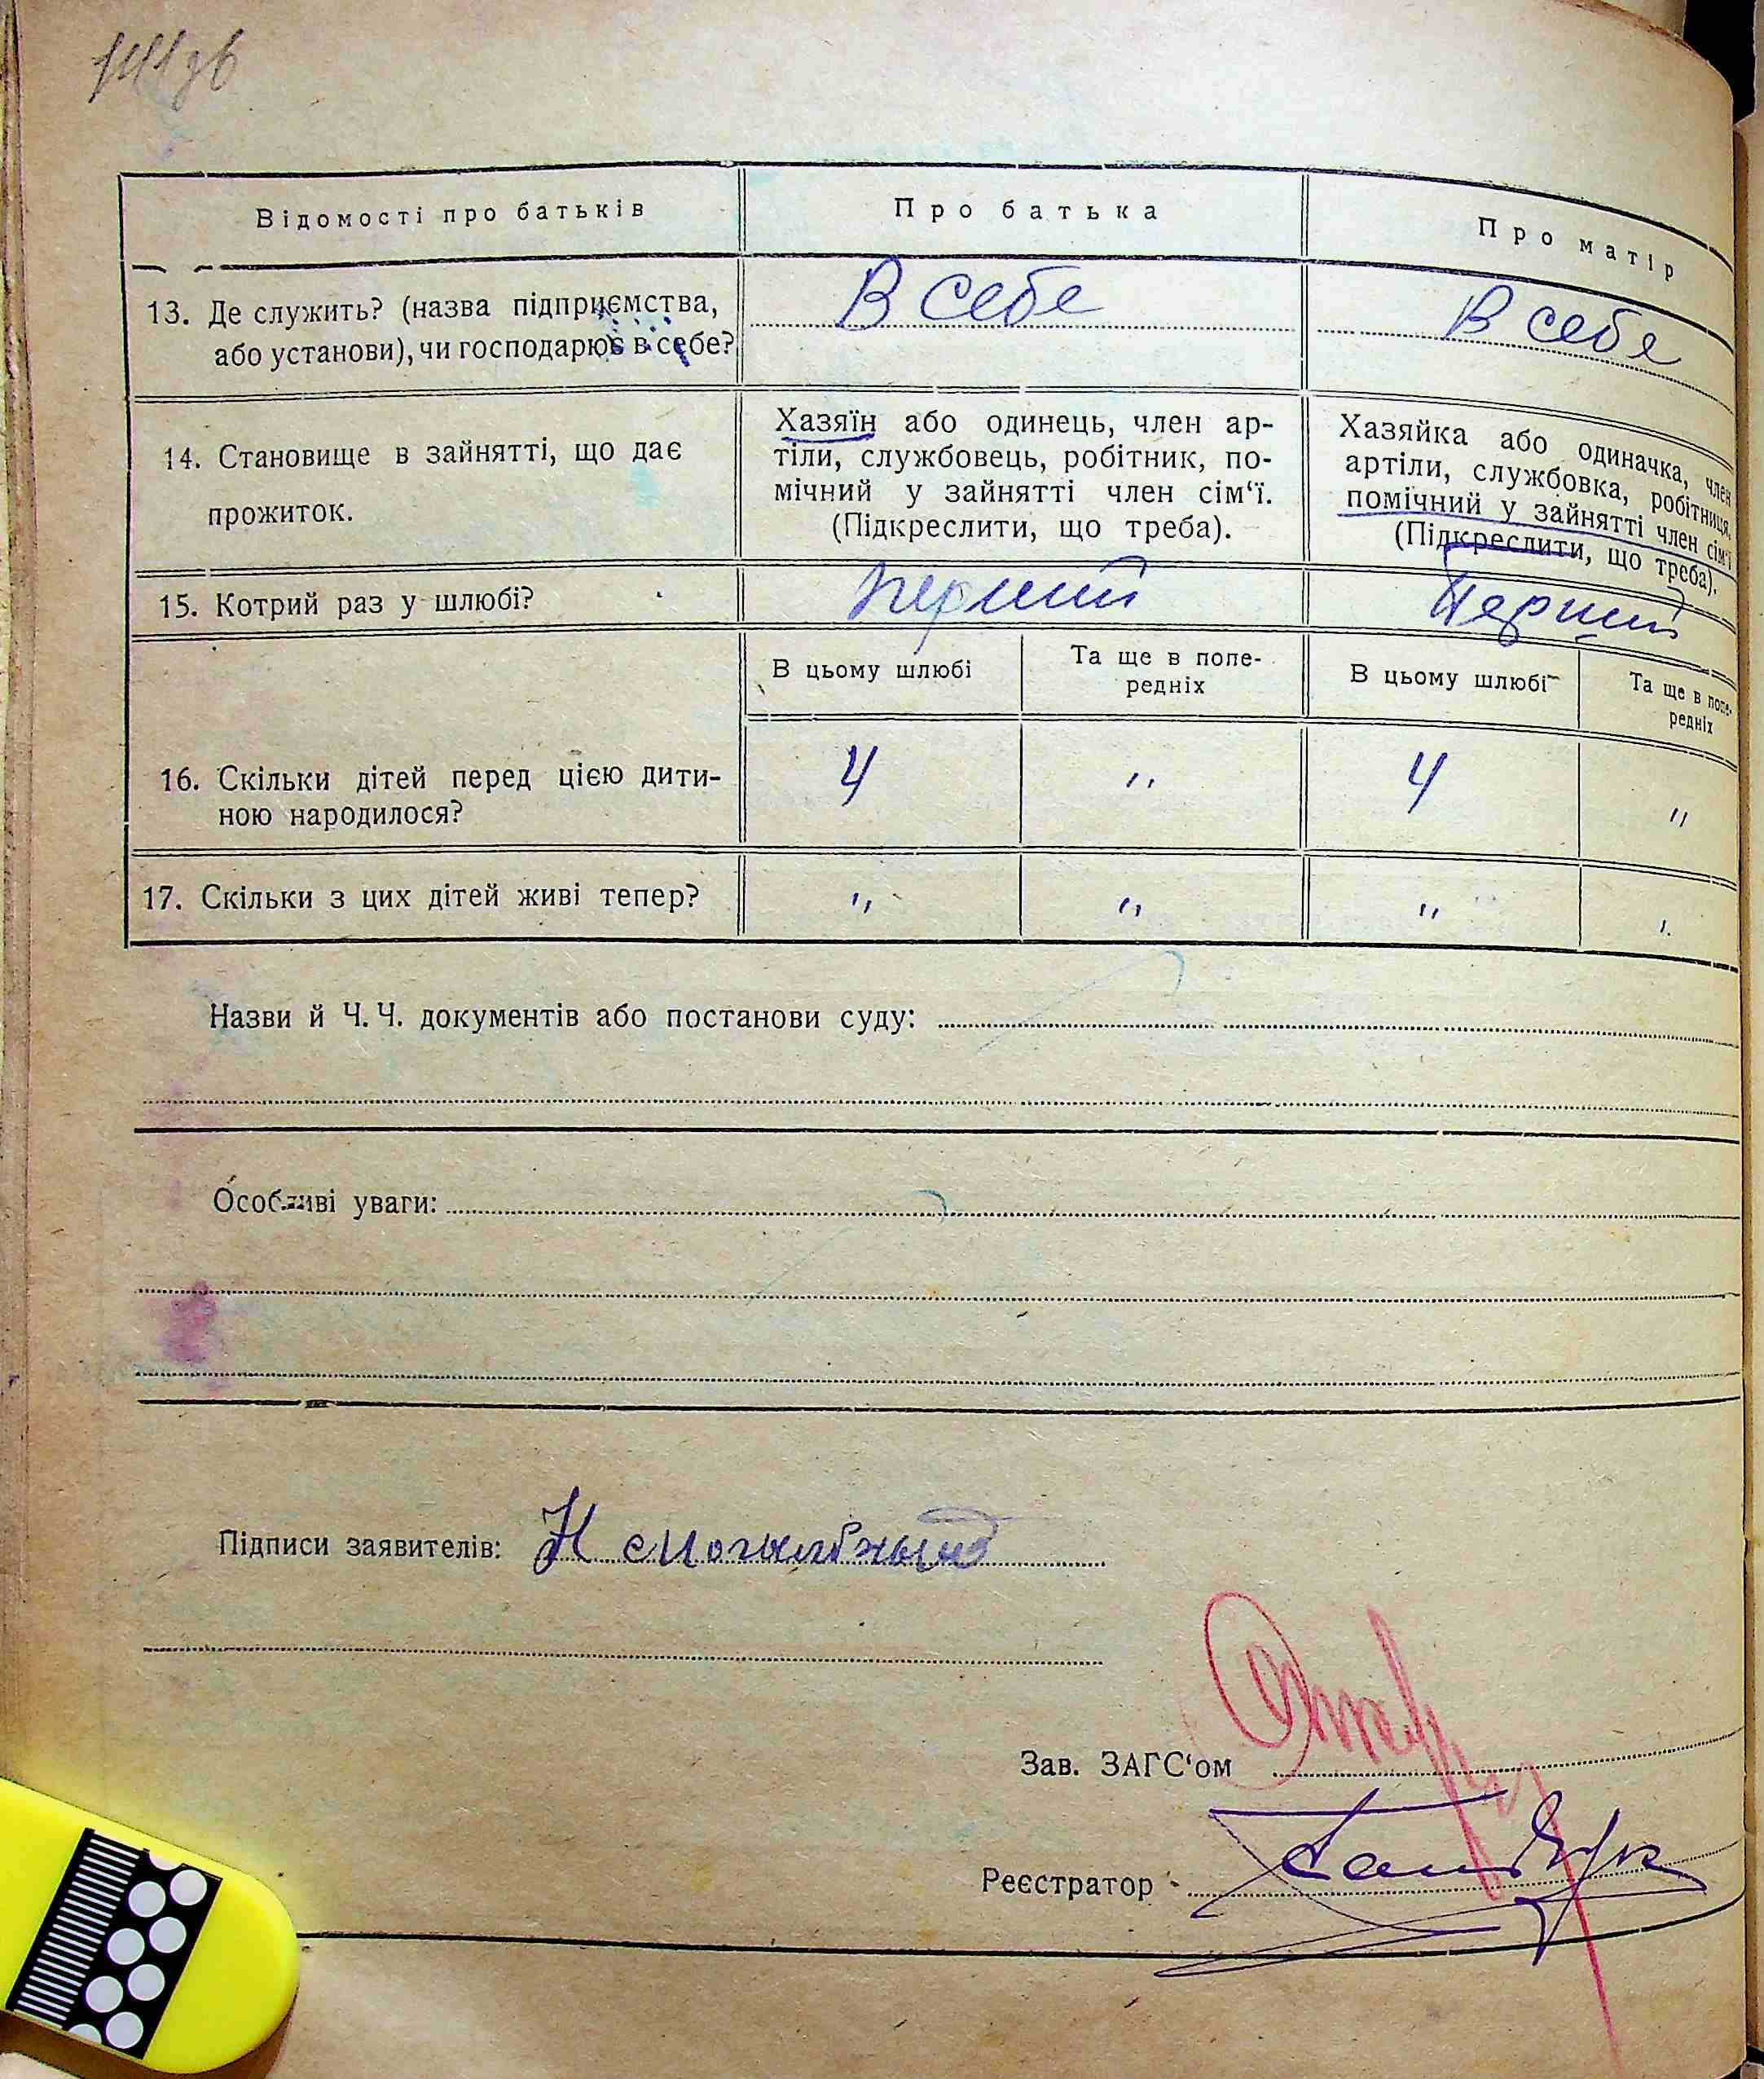 141зв
Відомості про батьків
Про батька
Про матір
13. Де служить? (назва підприємства,
або установи), чи господарює в себе?
В себе
В себе
14. Становище в зайнятті, що дає
прожиток.
Хазяїн або одинець, член ар-
тіли, службовець, робітник, по-
мічний у зайнятті член сім‘ї.
(Підкреслити, що треба).
Хазяйка або одиначка, член
артіли, службовка, робітниця,
помічний у зайнятті член сім‘ї
(Підкреслити, що треба).
15. Котрий раз у шлюбі?
перший
Перший
В цьому шлюбі
Та ще в попе-
редніх
В цьому шлюбі
Та ще в попе-
редніх
16. Скільки дітей перед цією дити-
ною народилося?
4
"
4
"
17. Скільки з цих дітей живі тепер?
"
"
"
"
Назви й Ч. Ч. документів або постанови суду:
Особливі уваги:
Підписи заявителів:
Зав. ЗАГС‘ом
Реєстратор